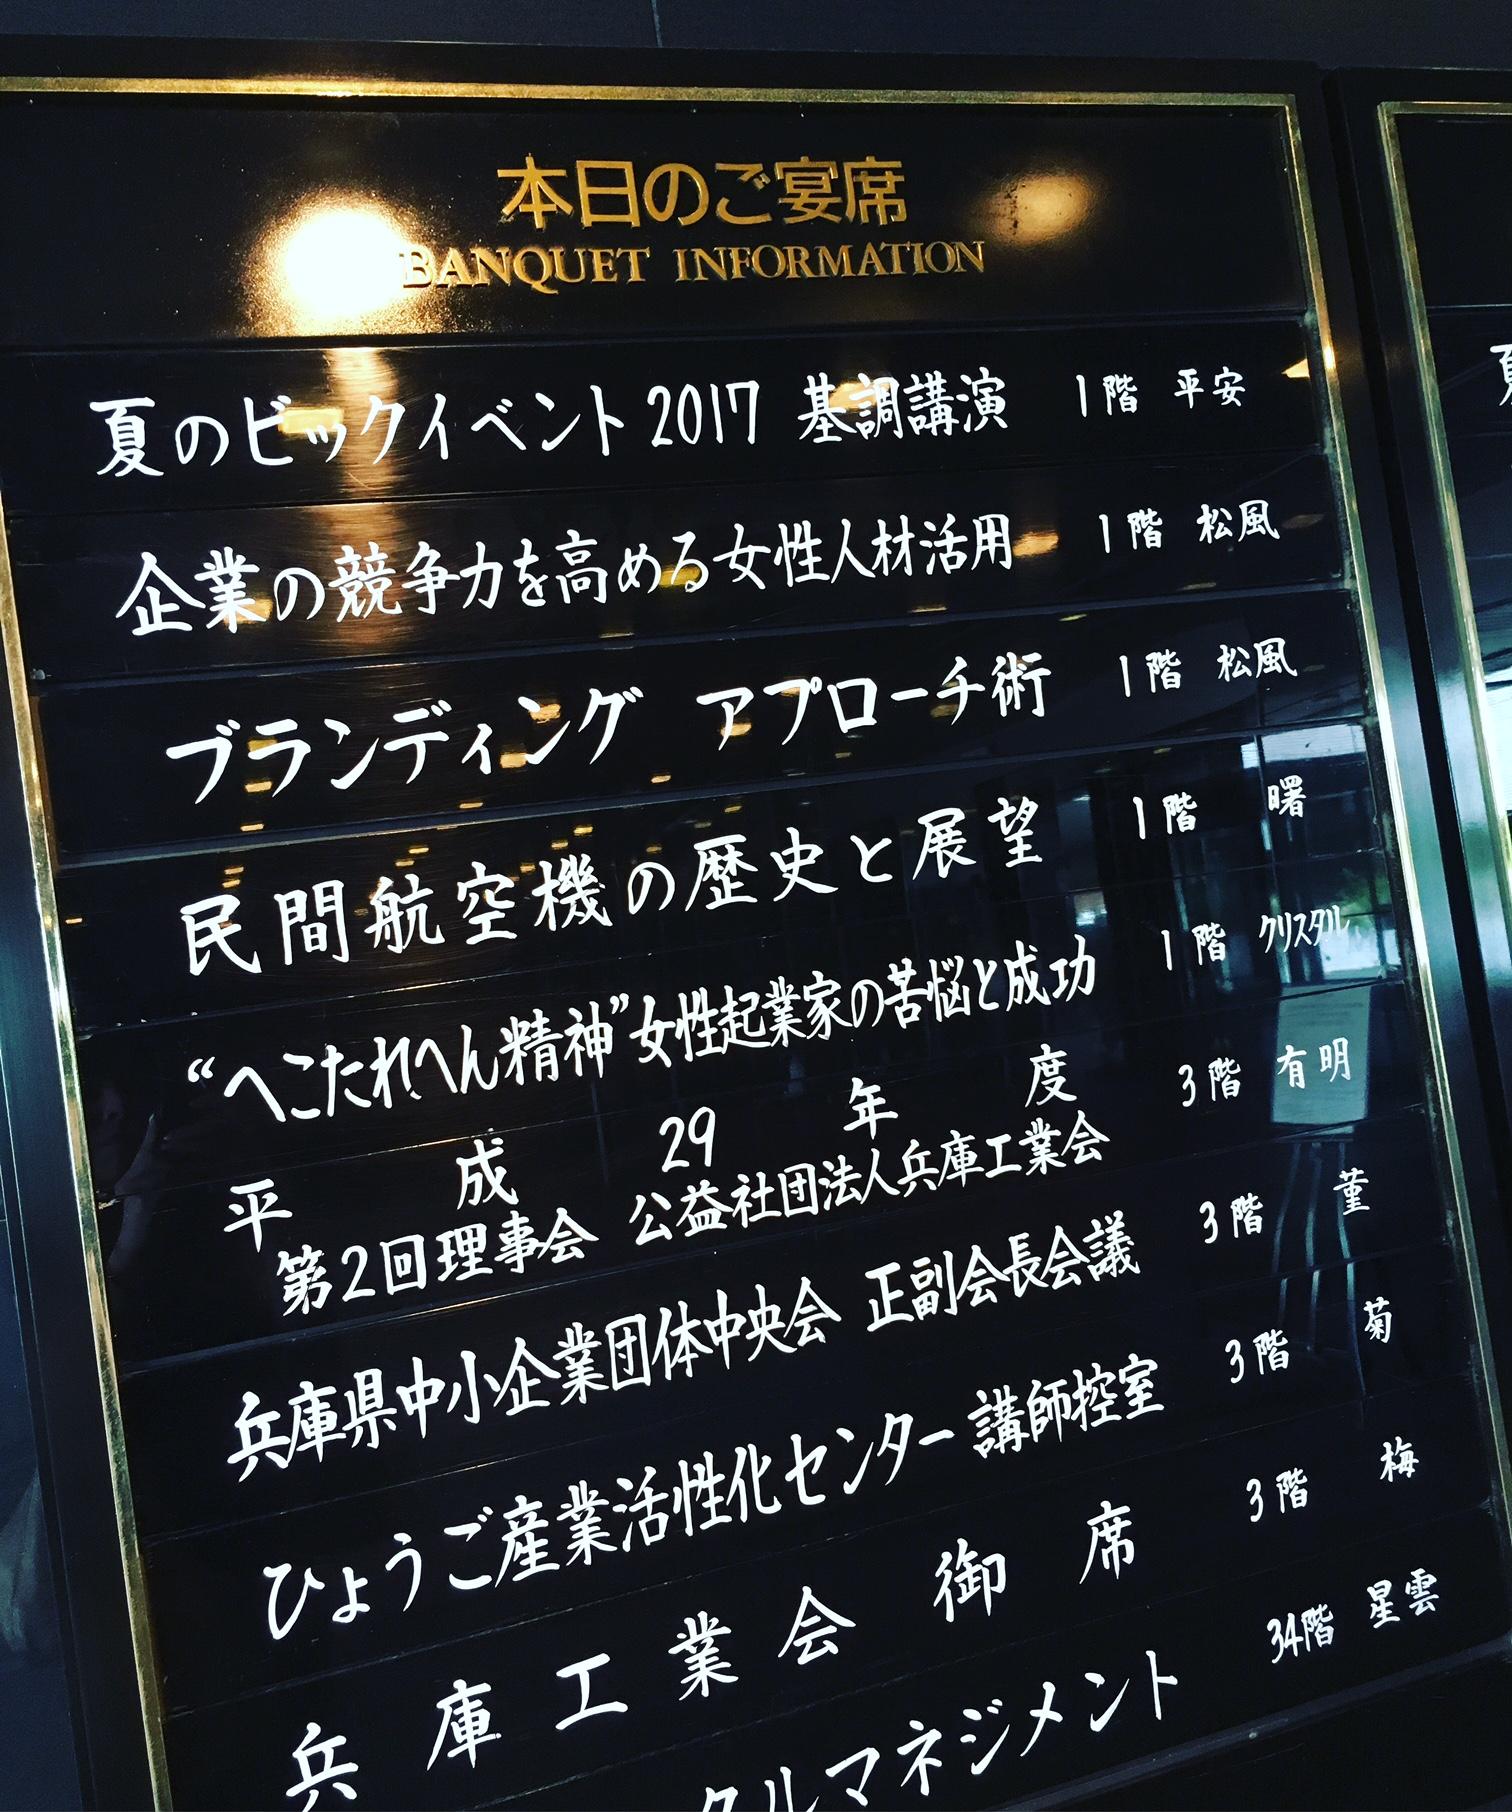 本日のご宴席
BANQUET INFORMATION
夏のビックイベント2017 基調講演 1階 平安
企業の競争力を高める女性人材活用 1階 松風
ブランディング アプローチ術 1階 松風
民間航空機の歴史と展望 1階 曙
“へこたれへん精神”女性起業家の苦悩と成功 1階 クリスタル
平成29年度 3階 有明
第2回理事会 公益社団法人兵庫工業会
兵庫県中小企業団体中央会 正副会長会議 3階 菫
ひょうご産業活性化センター 講師控室 3階 菊
兵庫工業会御席 3階 梅
タルマネジメント 34階 星雲
夏